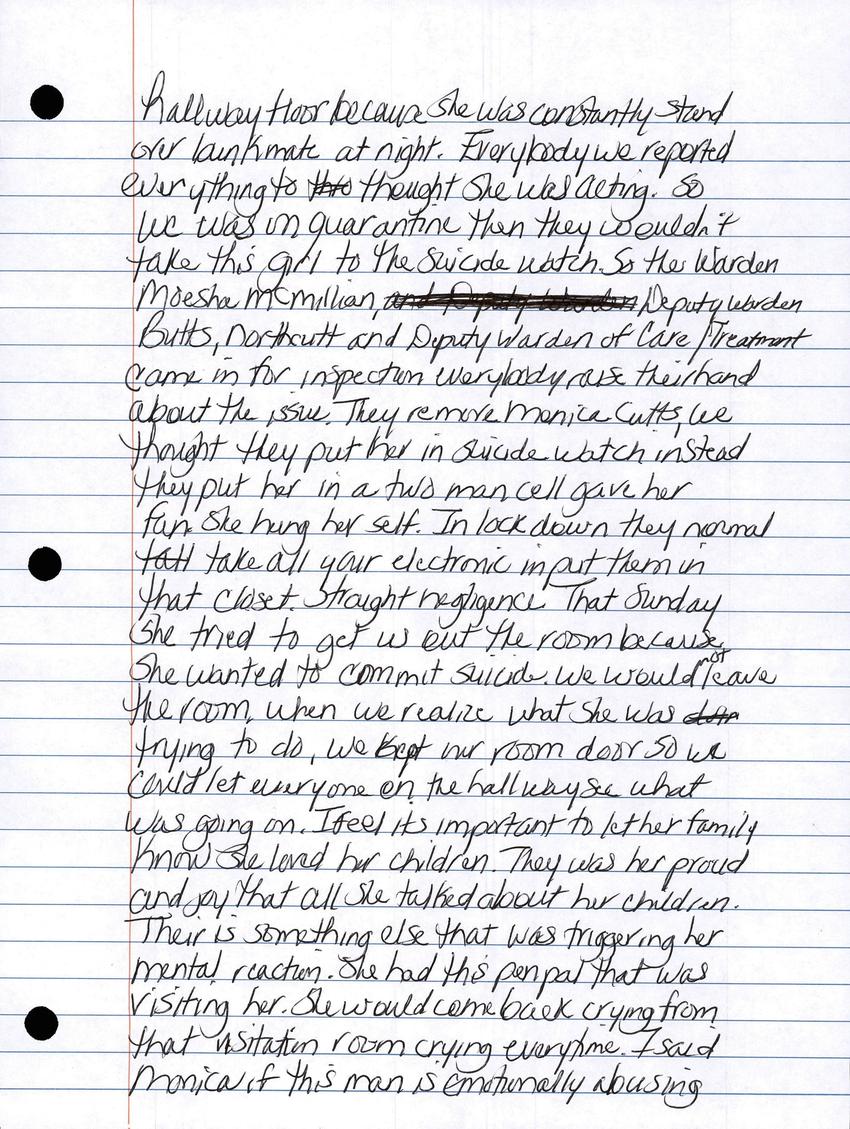 hallway floor because she was constantly stand
over bunkmate at night. Everybody we reported
everything to thought she was acting. So
we was on quarantine then they wouldn't
take this girl to the suicide watch. So the Warden
Moesha Mcmillian, and Deputy Warden Deputy Warden
Butts, Northcutt and Deputy Warden of Care/Treatment
came in for inspection everybody raise their hand
about the issue. They remove Monica Cutts, we
thought they put her in suicide watch instead
they put her in a two man cell gave her
fan. She hung her self. In lock down they normal
take all your electronic in put them in
that closet. Straight negligence. That Sunday
She tried to get us out the room because
She wanted to commit suicide. We would not leave
the room, when we realize what she was
trying to do, we kept our room door so we
could let everyone on the hallway see what
was going on. I feel its important to let her family
know she loved her children. They was her proud
and joy that all she talked about her children.
Their is something else that was triggering her
mental reaction. She had this penpal that was
visiting her. She would come back crying from
that visitation room crying everytime. I said
Monica if this man is emotionally abusing